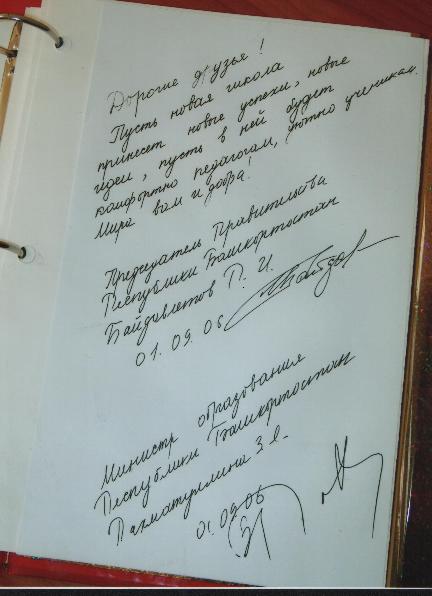 Дорогие друзья!
Пусть новая школа
принесет новые успехи, новые
идеи, пусть в ней будет
комфортно педагогам, уютно ученикам.
Мира вам и добра!
Председатель Правительства
Республики Башкортостан
Байдавлетов Р. И.
01.09.06
Министр образования
Республики Башкортостан
Рахматуллина З Я.
01.09.06